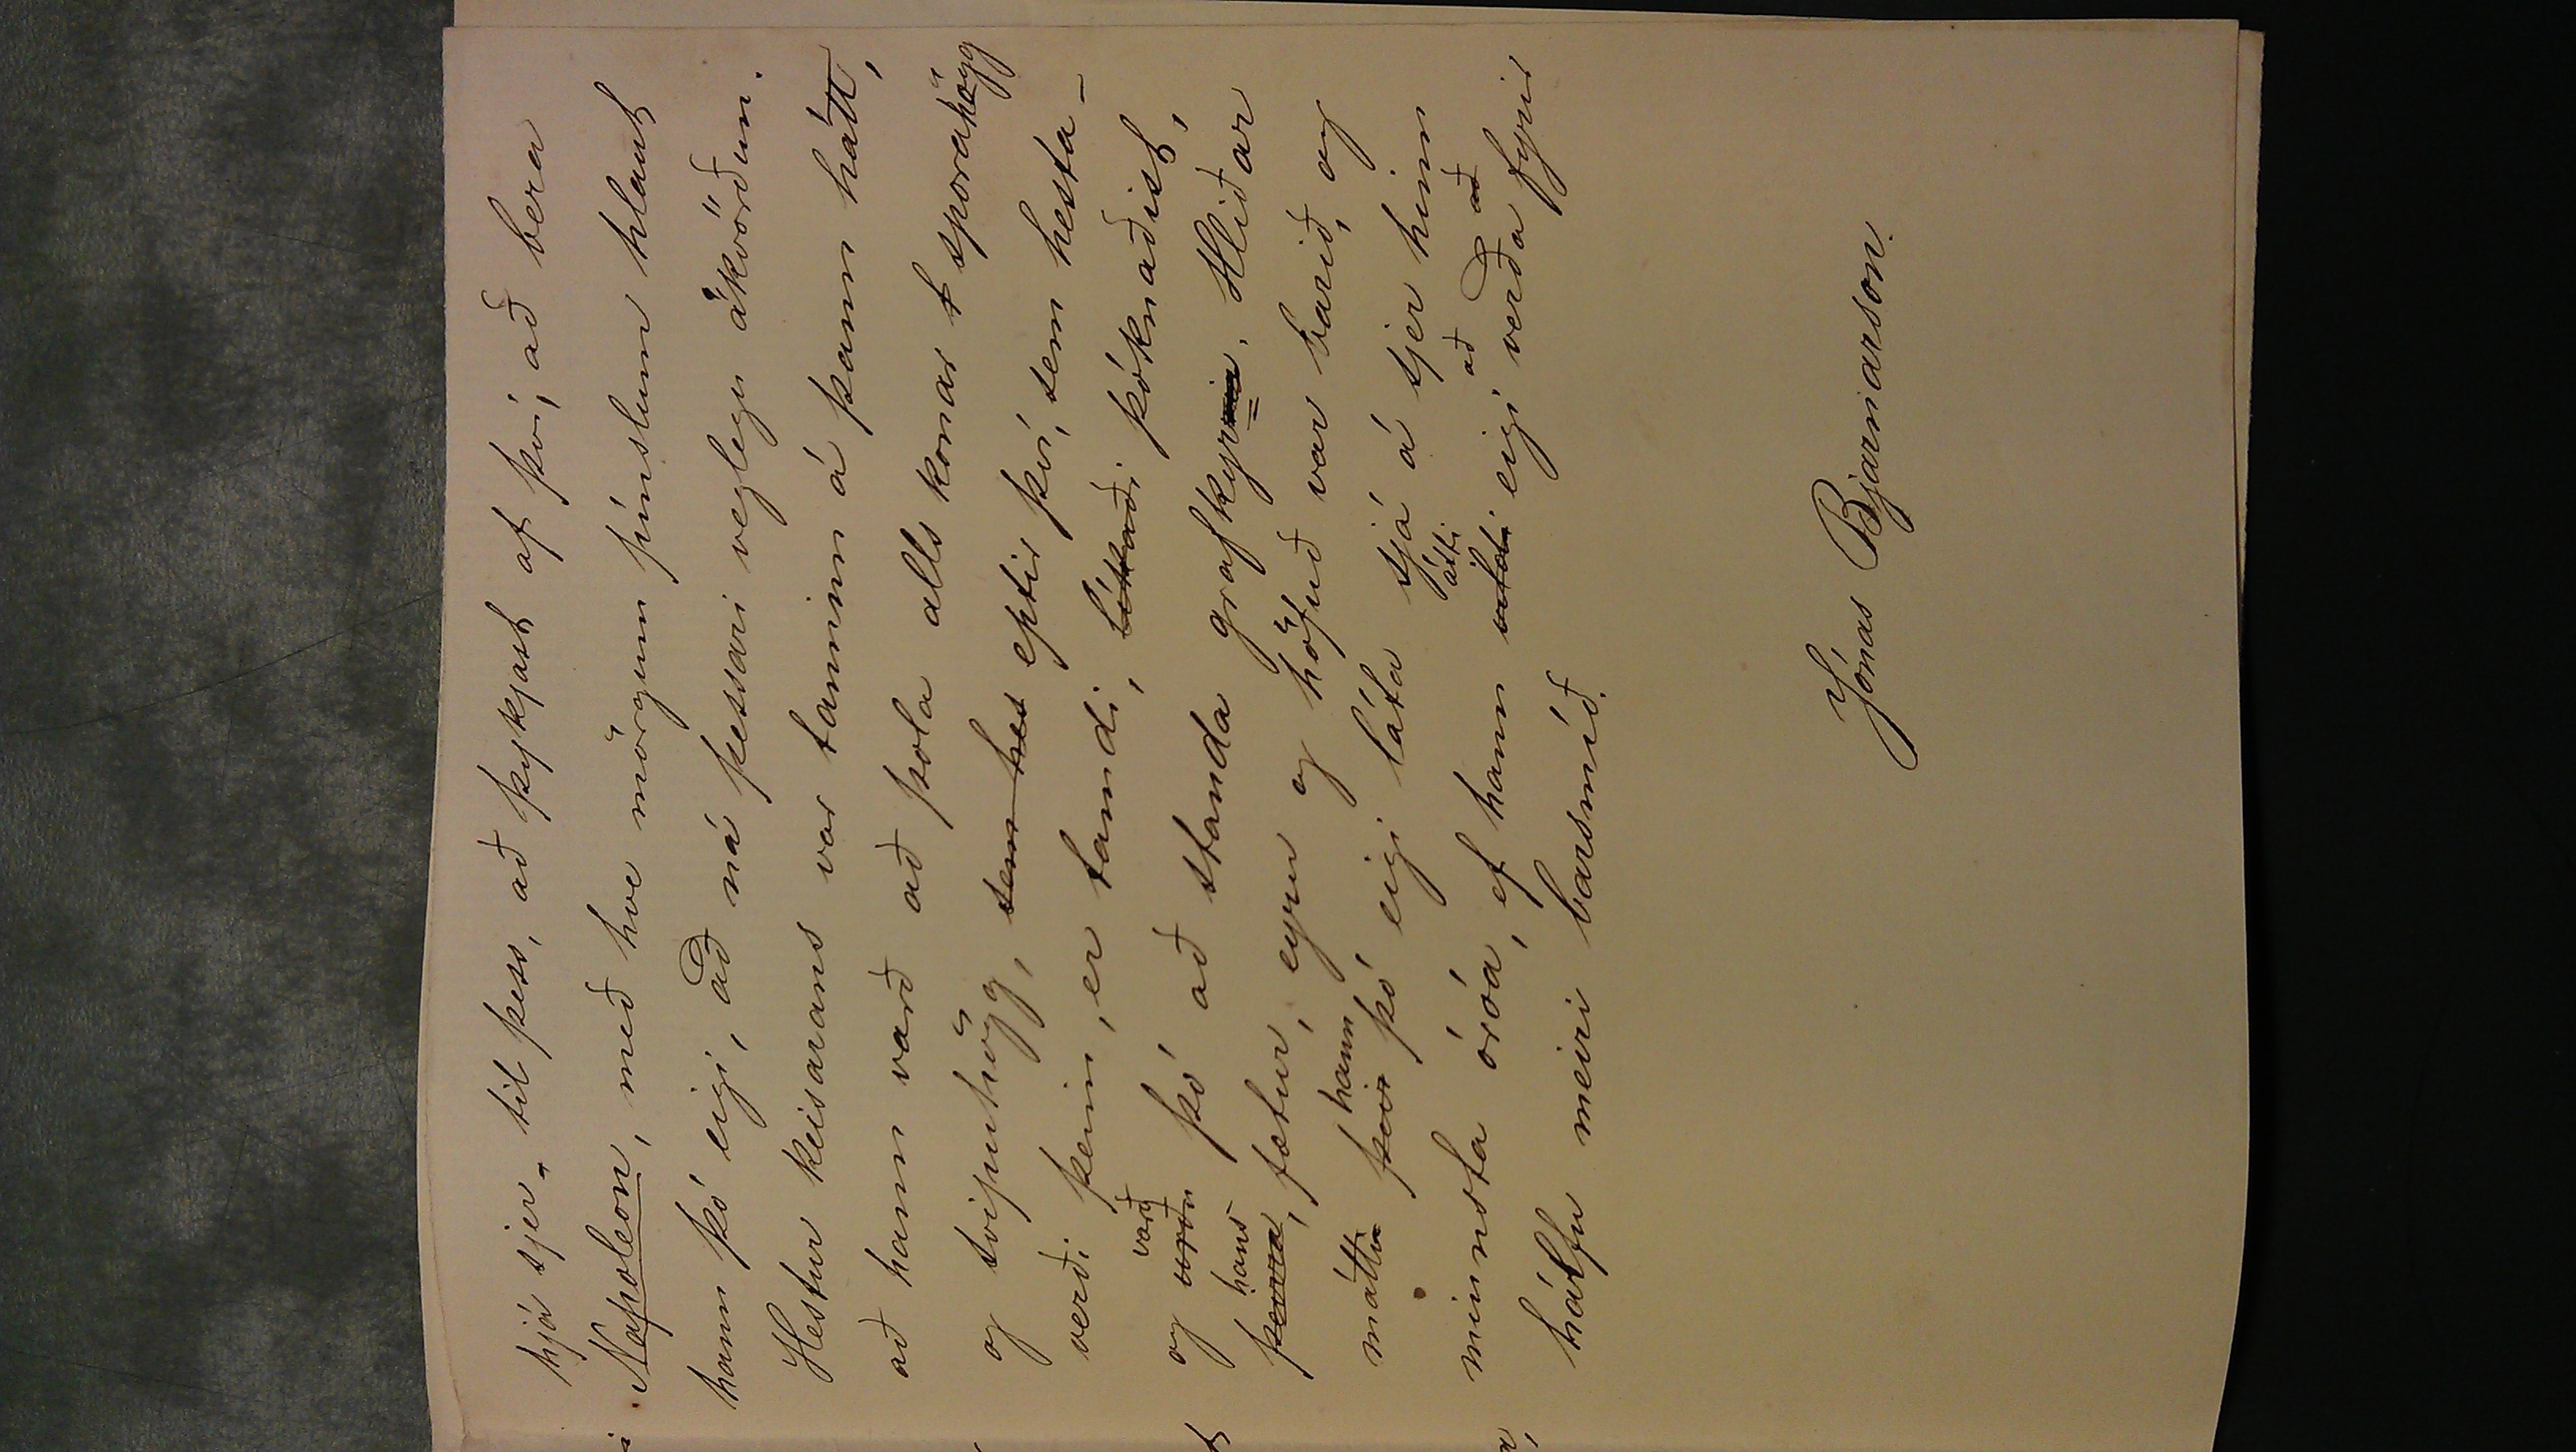 hjá sjer til þess, að þykjast af því, að bera
Napoleon, með hve mörgum pínslum hlaut
hann þó eigi, að ná þessari veglegu ákvörðun.
Hestur keisarans var taminn á þann hátt,
að hann varð að þola alls konar t sporahögg
og svipuhögg, sem hes eptir því, sem hesta-
verði þeim, er tamdi, líkaði þóknaðist,
varð
og urðu þó að standa grafkyr. Hliðar
hans
þeirra, fætur, eyru og höfuð var barið, og
hann
mátti þeir þó eigi láta sjá á sjer hinn
átti að að
minnsta óróa, ef hann vildi eigi verða fyrir
hálfu meiri barsmíð.
Jónas Bjarnarson.